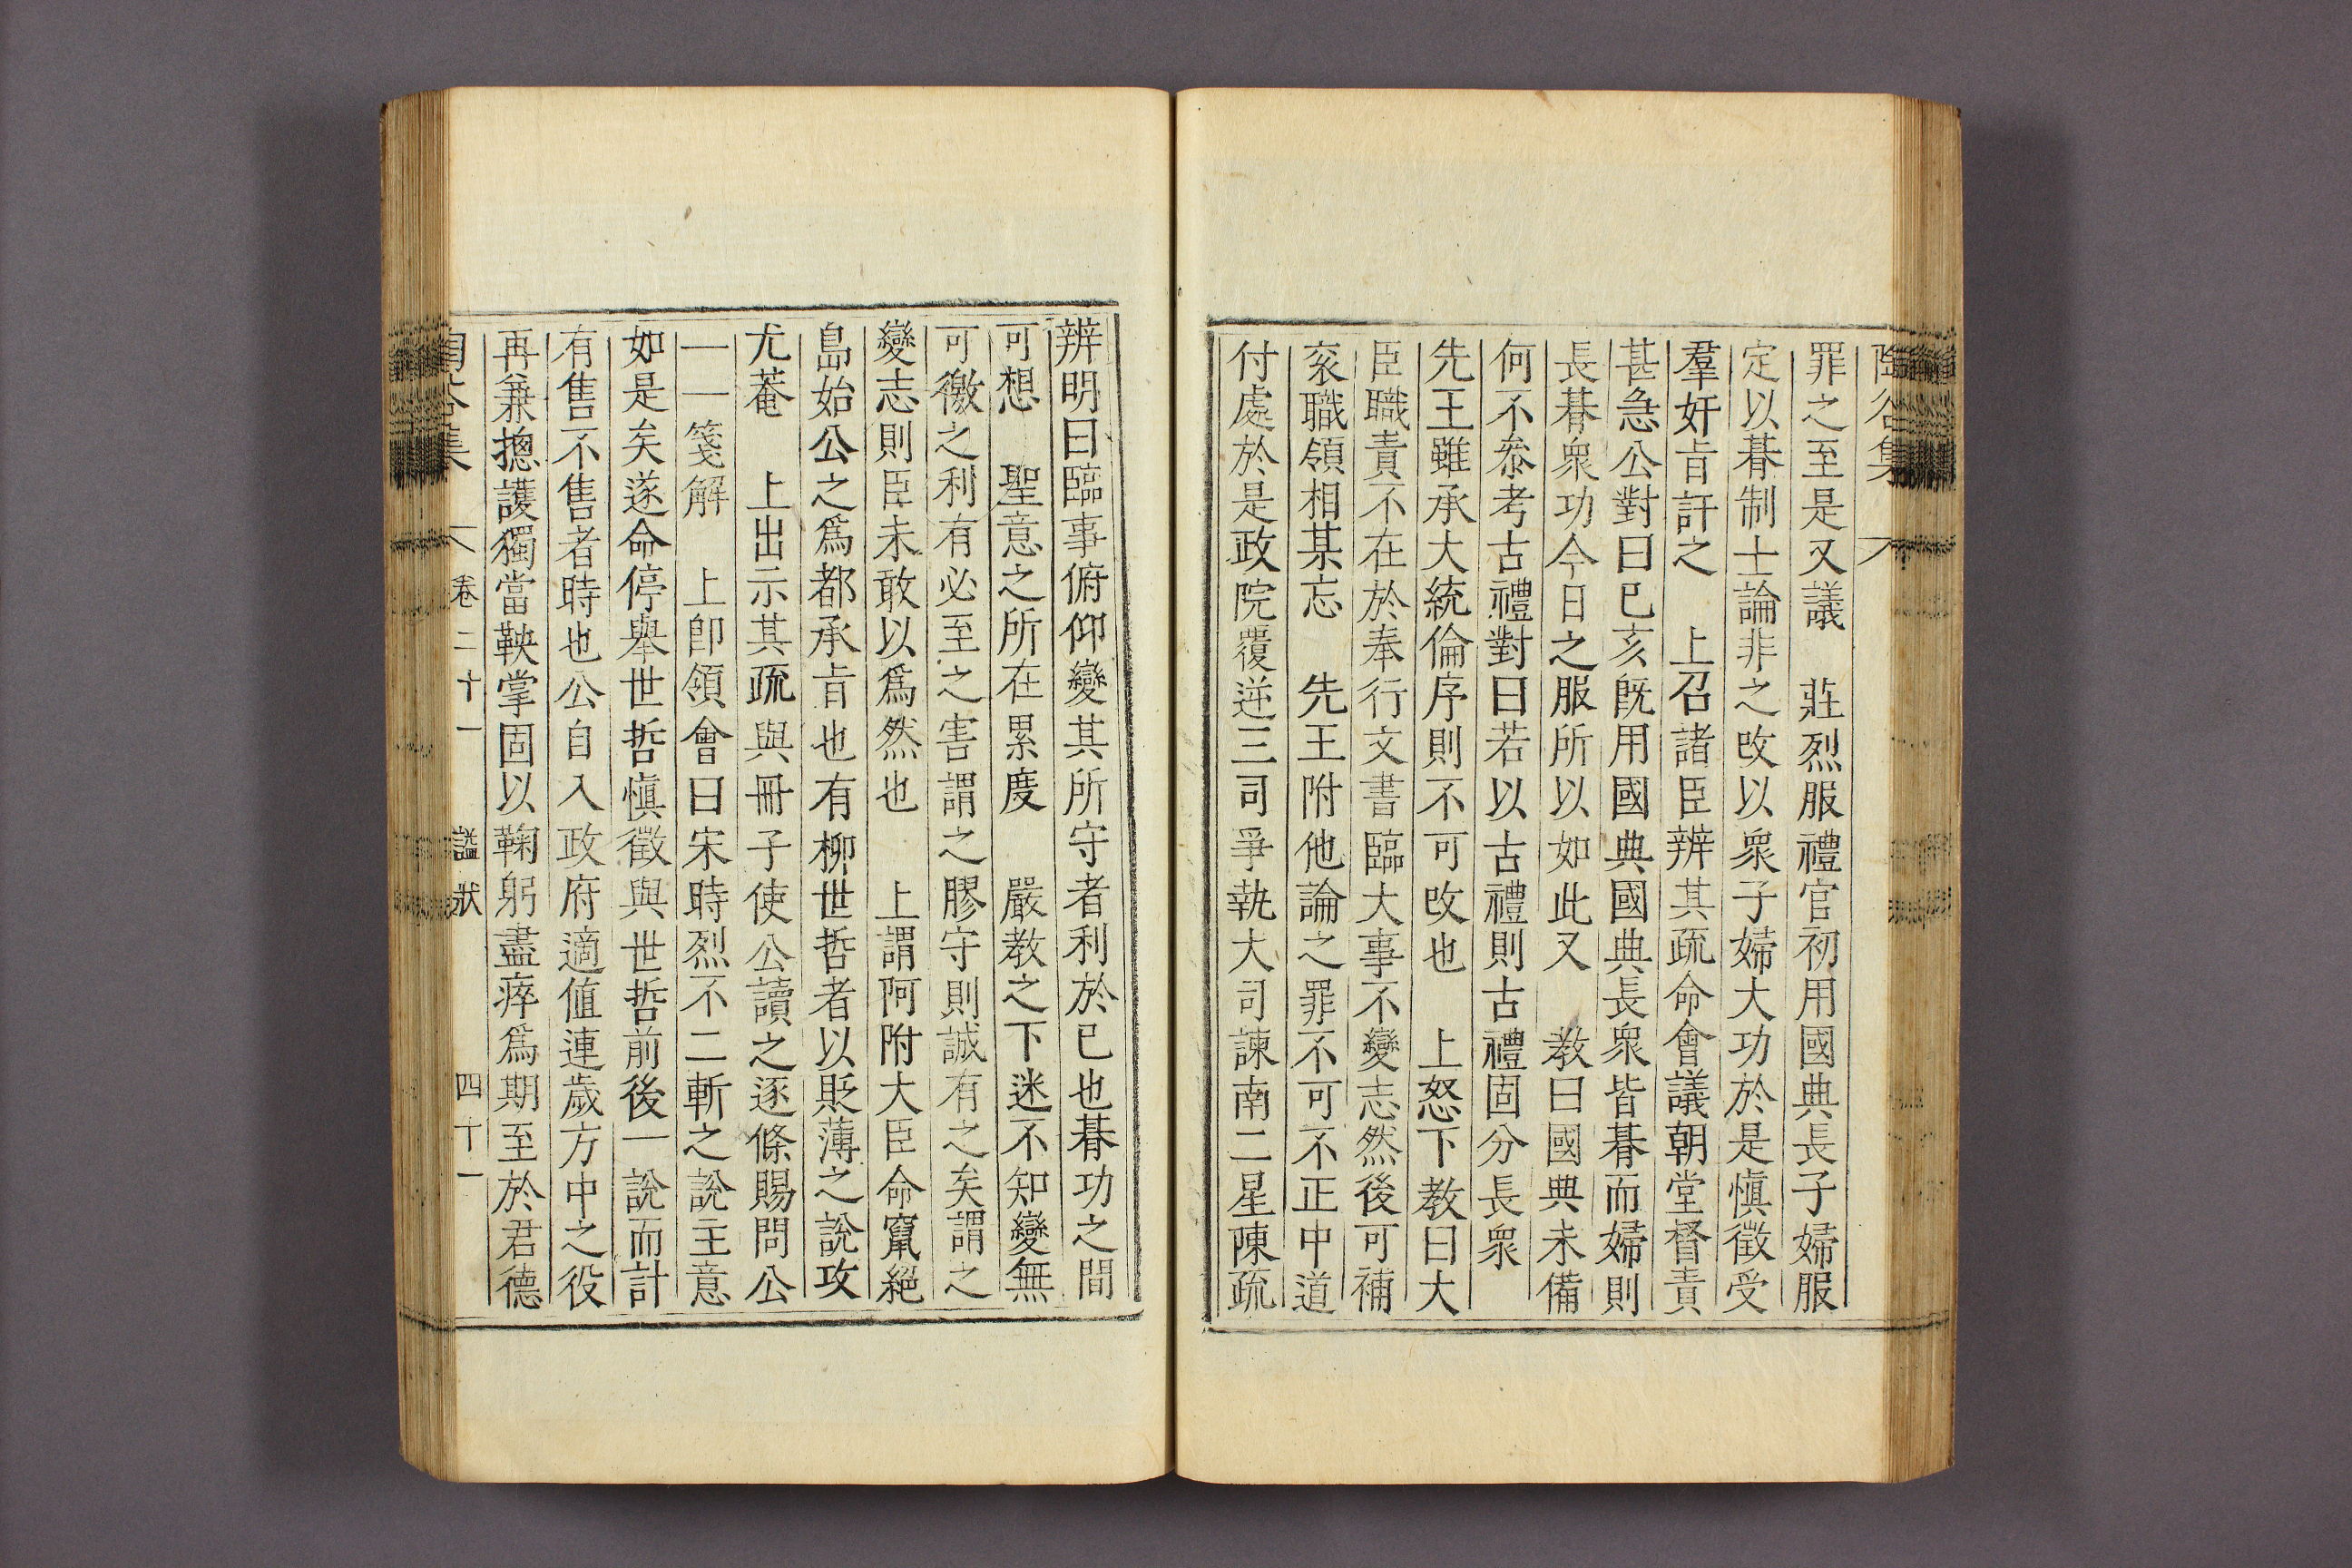 陶谷集
罪之至是又議　莊烈服禮官初用國典長子婦服
定以朞制士論非之改以衆子婦大功於是愼徵受
羣奸旨訐之　上召諸臣辨其疏命會議朝堂督責
甚急公對曰已亥旣用國典國典長衆皆朞而婦則
長朞衆功今日之服所以如此又　教曰國典未備
何不叅考古禮對曰若以古禮則古禮固分長衆
先王雖承大統倫序則不可改也　上怒下教曰大
臣職責不在於奉行文書臨大事不變志然後可補
衮職領相某忘　先王附他論之罪不可不正中道
付處於是政院覆逆三司爭執大司諫南二星陳疏
辨明曰臨事俯仰變其所守者利於已也朞功之間
可想　聖意之所在累度　嚴教之下迷不知變無
可徼之利有必至之害謂之膠守則誠有之矣謂之
變志則臣未敢以爲然也　上謂阿附大臣命竄絕
島始公之爲都承旨也有柳世哲者以貶薄之說攻
尤菴　上出示其疏與冊子使公讀之逐條賜問公
一一箋解　上卽領會曰宋時烈不二斬之說主意
如是矣遂命停舉世哲愼徵與世哲前後一說而計
有售不售者時也公自入政府適値連歲方中之役
再兼摠護獨當鞅掌固以鞠躬盡瘁爲期至於君德
陶谷集　卷二十一　謚狀　四十一